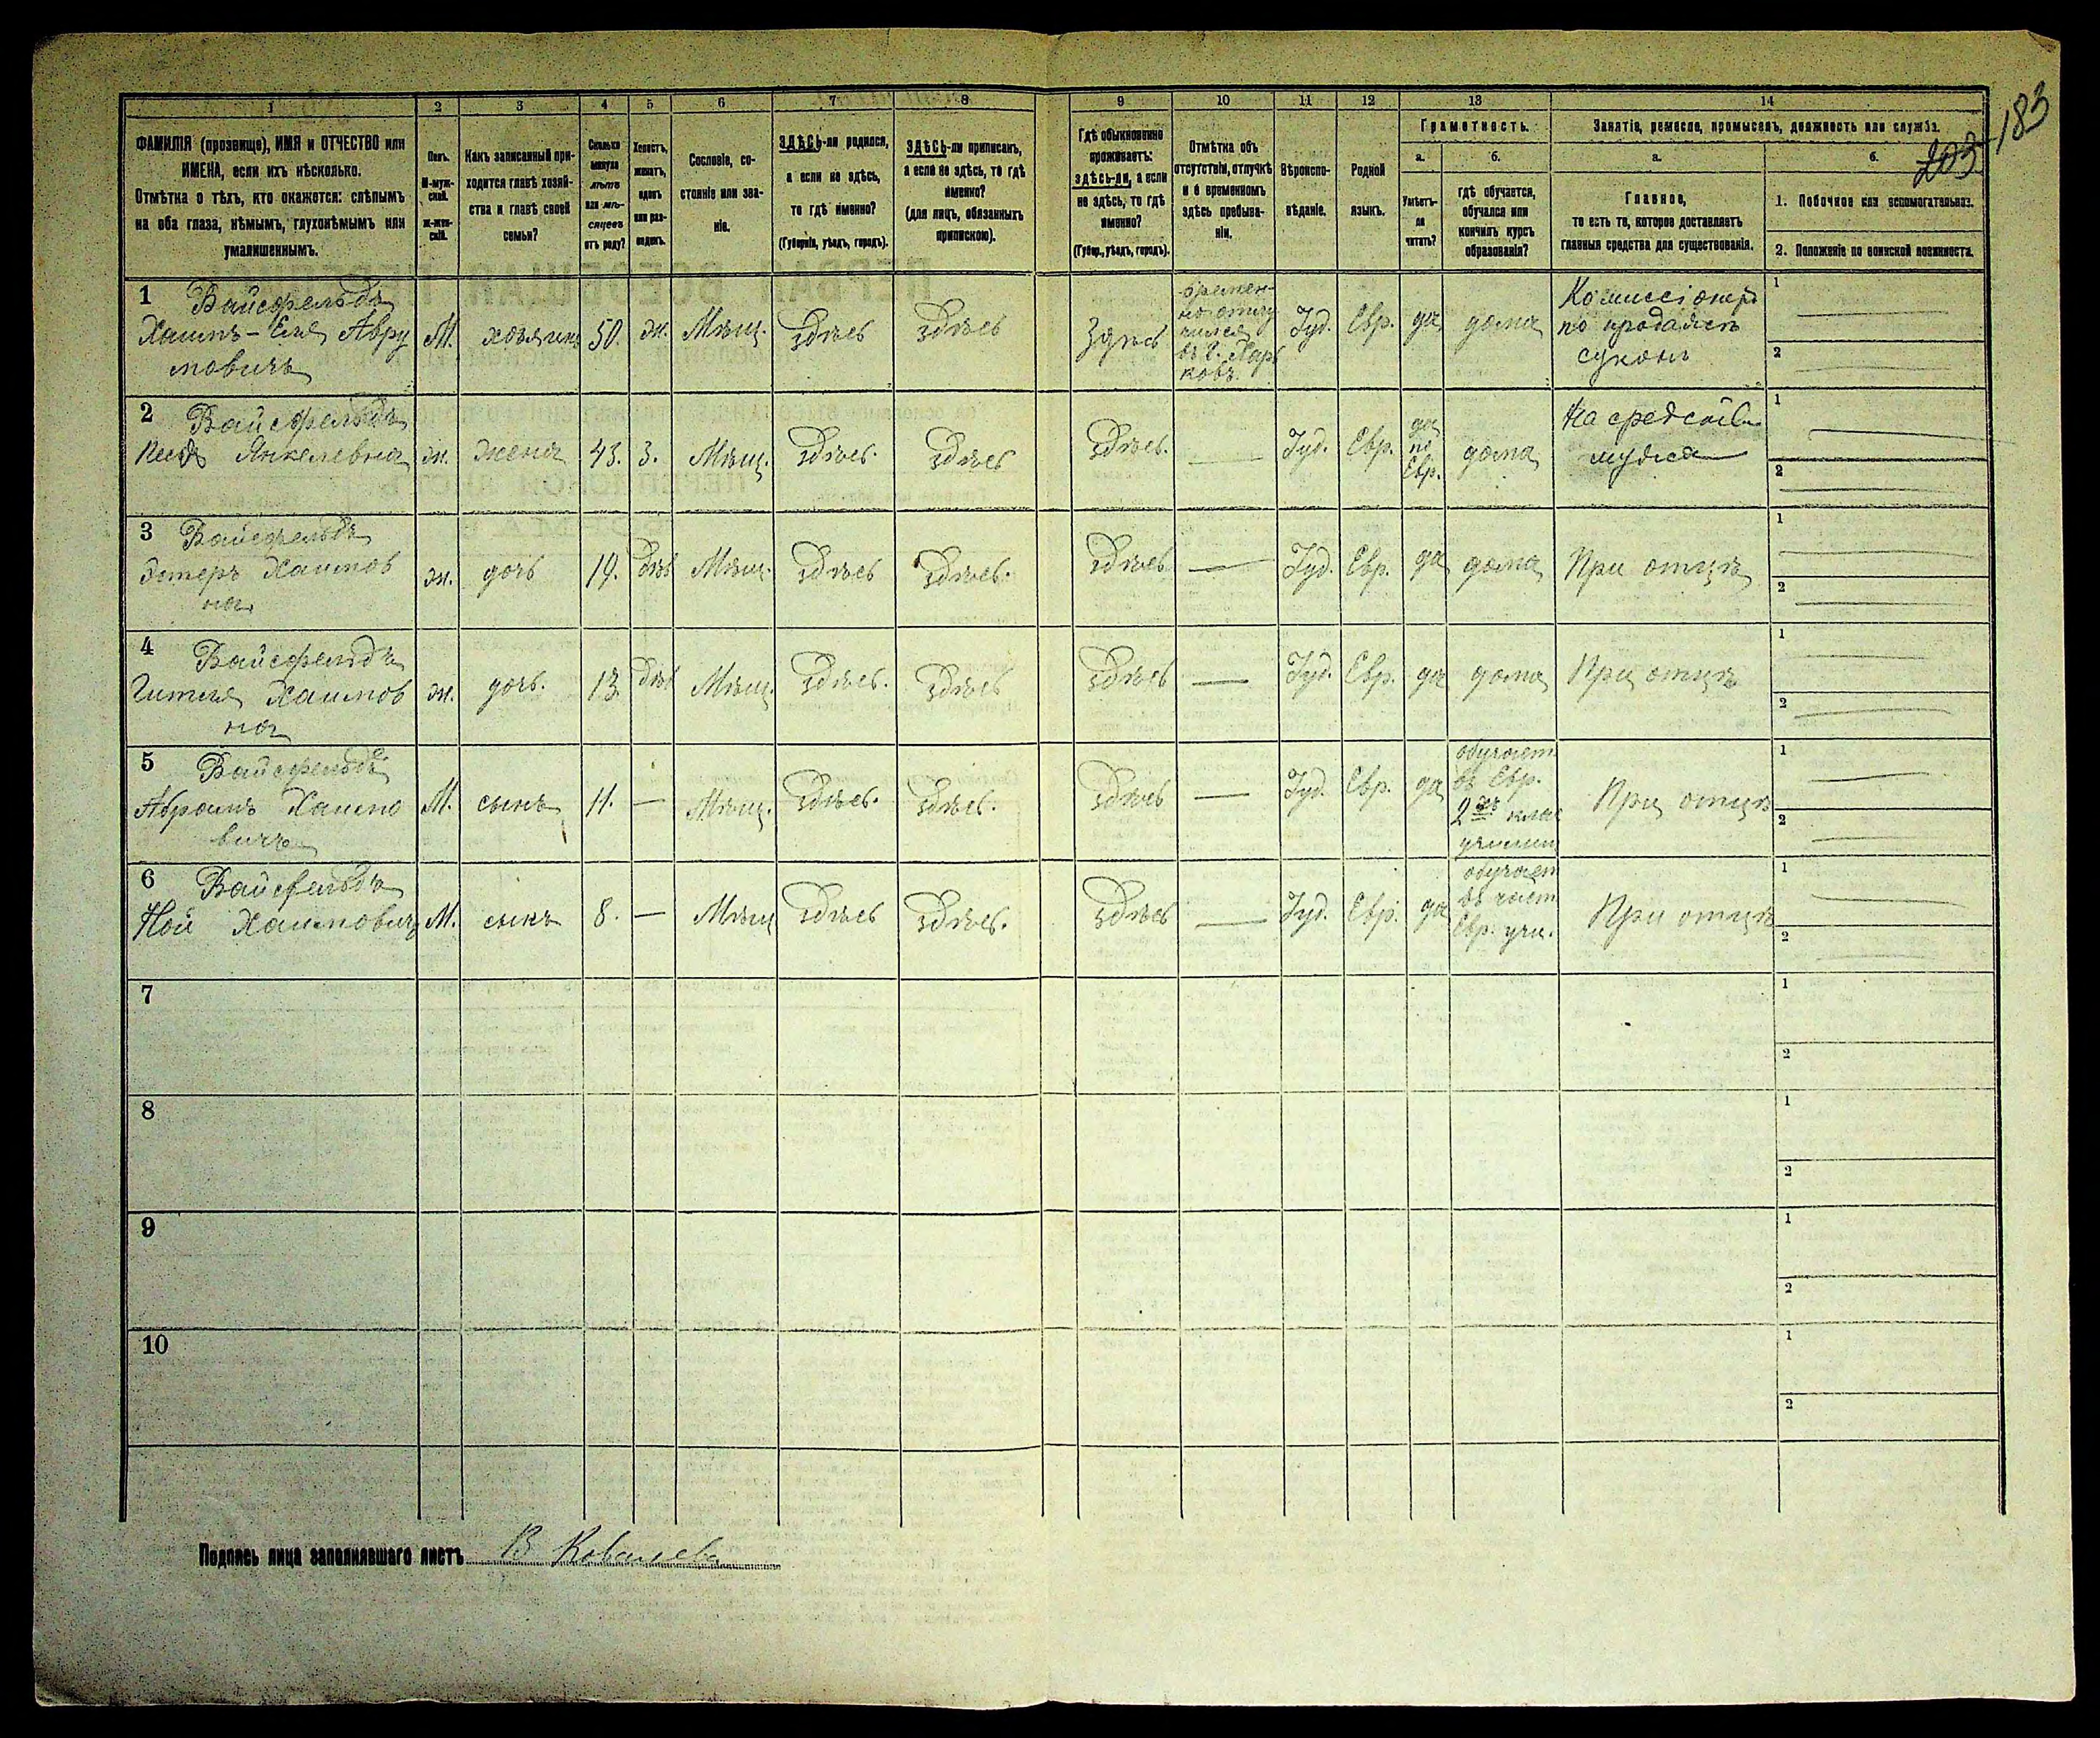 183
203
1 2 3 4 5 6 7 8 9 10 11 12 13 14
ФАМИЛІЯ (прозвище), ИМЯ и ОТЧЕСТВО или
ИМЕНА, если ихъ нѣсколько.
Отмѣтка о тѣхъ, кто окажется: слѣпымъ
на оба глаза, нѣмымъ, глухонѣмымъ или
умалишеннымъ.
Полъ.
М-муж-
ской.
Ж-жен-
скій.
Какъ записанный при-
ходится главѣ хозяй-
ства и главѣ своей
семьи?
Сколько
минуло
лѣтъ
или мѣ-
сяцевъ
отъ роду?
Холостъ,
женатъ,
вдовъ
или раз-
веденъ.
Сословіе, со-
стояніе или зва-
ніе.
ЗДѢСЬ-ли родился,
а если не здѣсь,
то гдѣ именно?
(Губернія, уѣздъ, городъ).
ЗДѢСЬ-ли приписанъ,
а если не здѣсь, то гдѣ
именно?
(для лицъ, обязанныхъ
припискою).
Гдѣ обыкновенно
проживаетъ:
здѣсь-ли, а если
не здѣсь, то гдѣ
именно?
(Губер., уѣздъ, городъ).
Отмѣтка объ
отсутствіи, отлучкѣ
и о временномъ
здѣсь пребыва-
ніи.
Вѣроиспо-
вѣданіе.
Родной
языкъ.
Грамотность.
а.
Умѣетъ-
ли
читать?
б.
гдѣ обучается,
обучался или
кончилъ курсъ
образованія?
Занятіе, ремесло, промыселъ, должность или служба.
а.
Главное,
то есть то, которое доставляетъ
главныя средства для существованія.
б.
1. Побочное или вспомогательное.
2. Положеніе по воинской повинности.
1 Вайсфельдъ
Хаимъ-Еля Авру
мовичъ
М.
хозяинъ
50.
ж.
Мѣщ.
здѣсь
здѣсь
Здѣсь
времен-
но отлу
чился
въ г. Харь
ковъ.
Іуд.
Евр.
да
дома
Комиссіонеръ
по продажѣ
суконъ
1
2
2 Вайсфельдъ
Песя Янкелевна
ж.
жена
43.
З.
Мѣщ.
здѣсь.
здѣсь
здѣсь.
Іуд.
Евр.
да
по
Евр.
дома
На средства
мужа
1
2
3 Вайсфельдъ
Эстеръ Хаимов
на
ж.
дочь
19.
дѣв
Мѣщ.
здѣсь
здѣсь.
здѣсь
Іуд.
Евр.
да
дома
При отцѣ
1
2
4 Вайсфельдъ
Гитля Хаимов
на
ж.
дочь.
13.
дѣв
Мѣщ.
здѣсь.
здѣсь
здѣсь
Іуд.
Евр.
да
дома
При отцѣ
1
2
5 Вайсфельдъ
Абрамъ Хаимо
вичъ
М.
сынъ
11.
Мѣщ.
здѣсь.
здѣсь.
здѣсь
Іуд.
Евр.
да
обучает.
въ Евр.
2хъ клас
училищ
При отцѣ
1
2
6 Вайсфельдъ
Ной Хаимовичъ
М.
сынъ
8.
Мѣщ
здѣсь
здѣсь.
здѣсь
Іуд.
Евр.
да
обучает
въ част
Евр. учи.
При отцѣ
1
2
7
1
2
8
1
2
9
1
2
10
1
2
Подпись лица заполнявшаго листъ В Ковалева